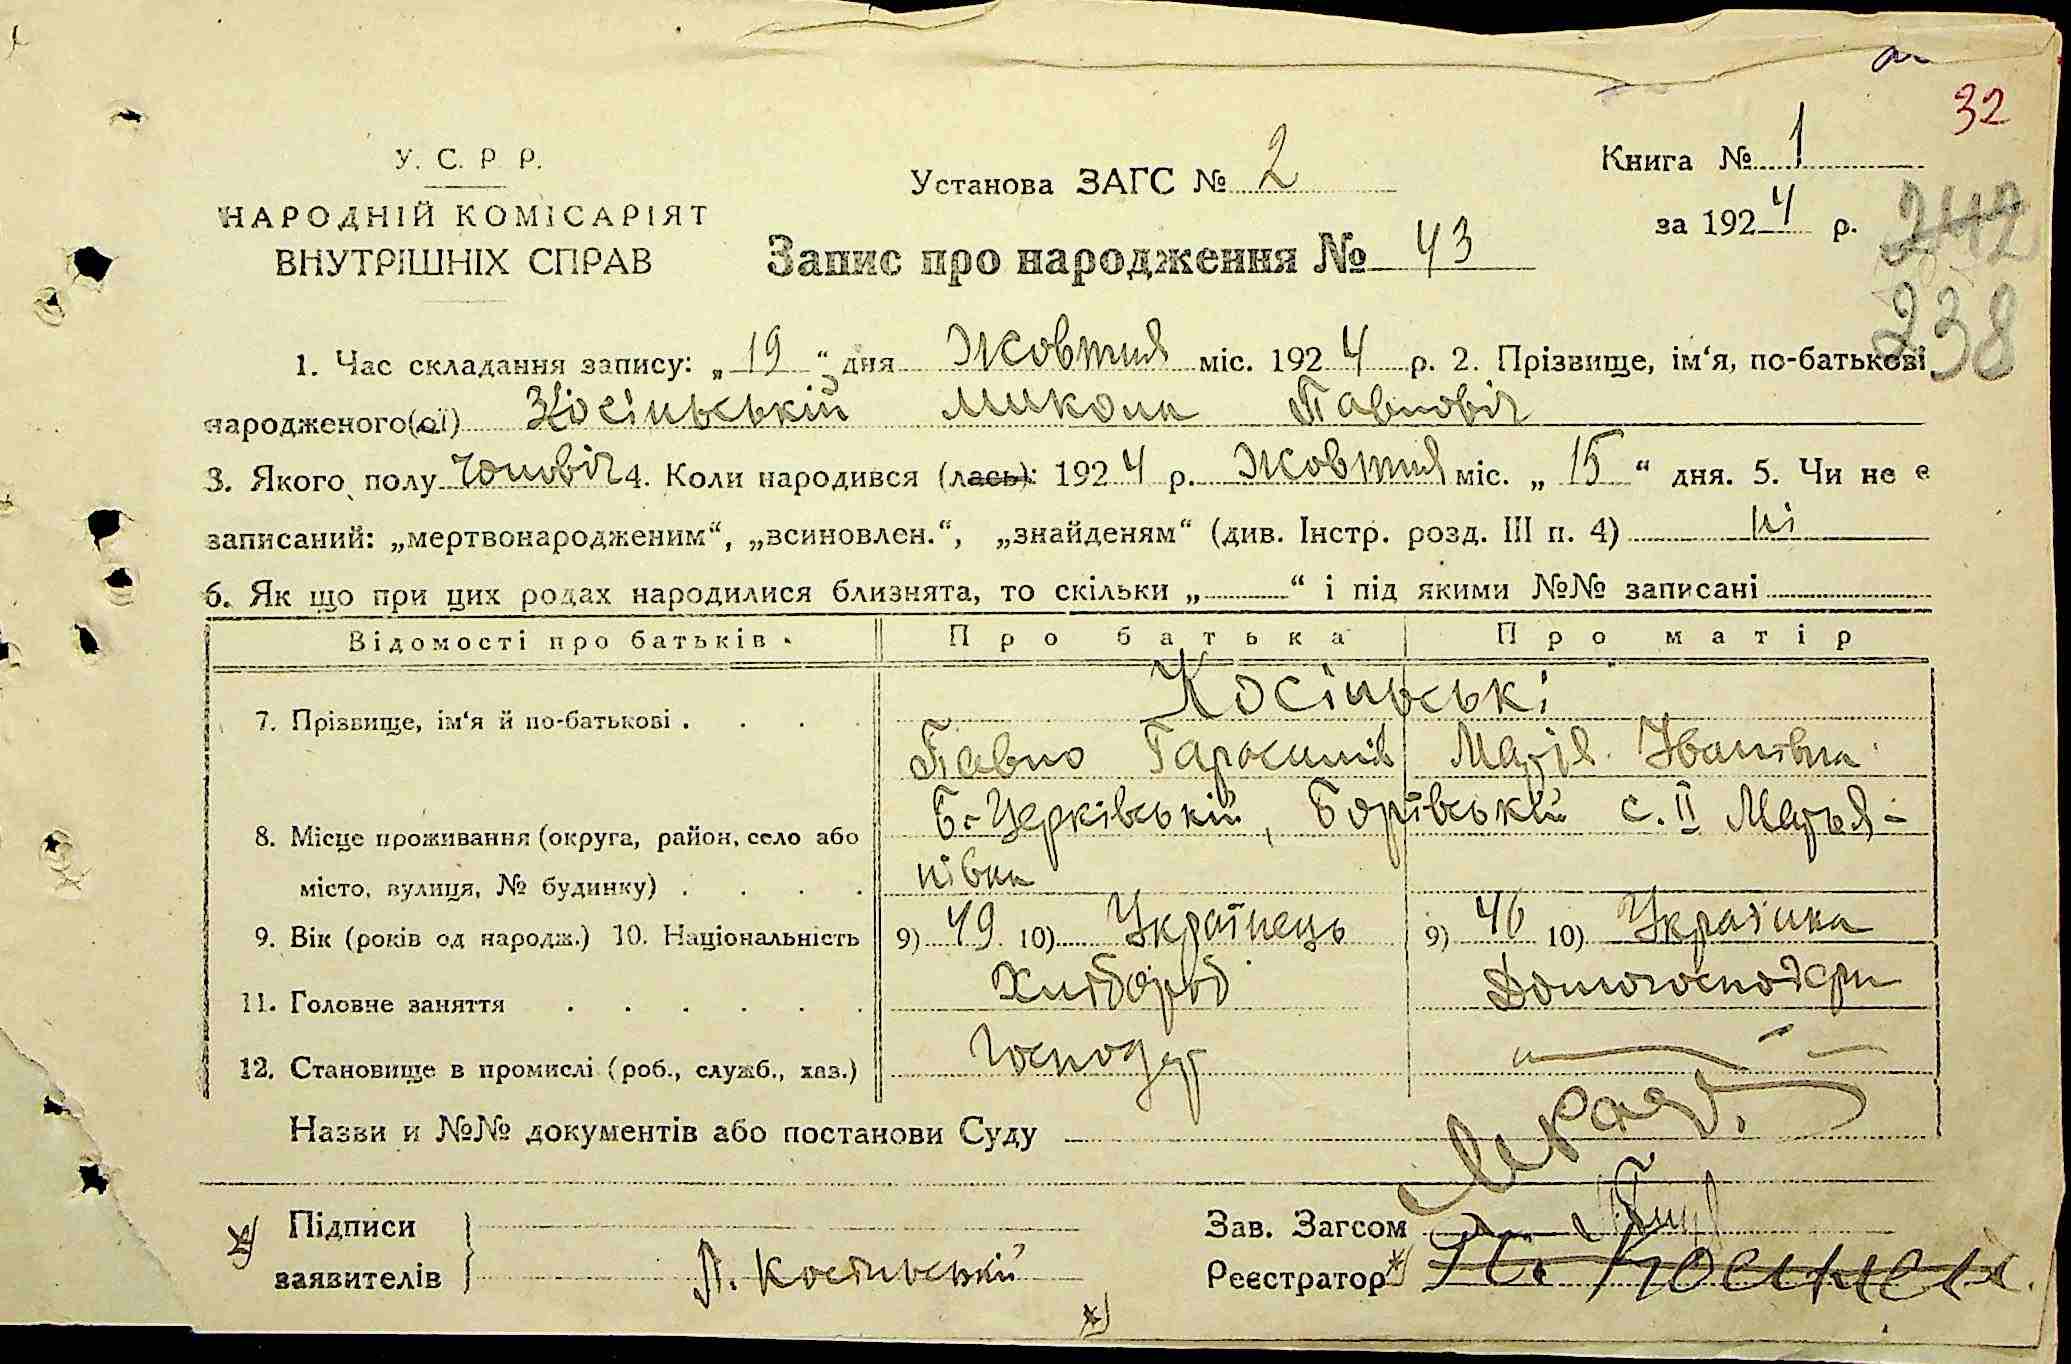 32
У. С. Р Р.
НАРОДНІЙ КОМІСАРІЯТ
ВНУТРІШНІХ СПРАВ
Установа ЗАГС № 2
Книга № 1
за 1924 р.
242
238
Запис про народження № 43
1. Час складання запису: „19“ дня Жовтня міс. 1924 р. 2. Прізвище, ім‘я, по-батькові
народженого(ої) Косінський Микола Павловіч
3. Якого полу Чоловіч 4. Коли народився (лась): 1924 р. Жовтня міс. „15“ дня. 5. Чи не є
записаний: „мертвонародженим“, „всиновлен.“, „знайденям“ (див. Інстр. розд. III п. 4) ні
6. Як що при цих родах народилися близнята, то скільки „ “ і під якими №№ записані
Відомості про батьків. Про батька Про матір
Косінські
7. Прізвище, ім‘я й по-батькові . . . .
Павло Гарасимів Марія Іванівна
Б-Церківській, Борівській с. II Марья-
8. Місце проживання (округа, район, село або
місто, вулиця, № будинку) . . . .
нівка
9. Вік (років од народж.) 10. Національність 9) 49 10) Українець 9) 46 10) Українка
11. Головне заняття . . . . . . Хлібороб Домогосподари
12. Становище в промислі (роб., служб., хаз.) Господар
Назви и №№ документів або постанови Суду
Підписи
заявителів
П. Косінський
Зав. Загсом
Реєстратор